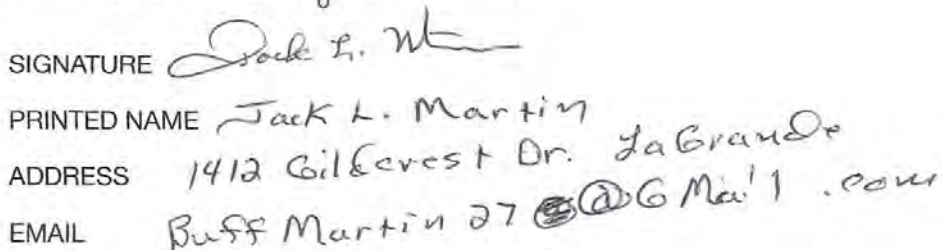 SIGNATURE Jack L. M
PRINTED NAME Jack L. Martin
ADDRESS 1412 Gilkcrest Dr. LaGrande
EMAIL Buff Martin 27 @GMail.com